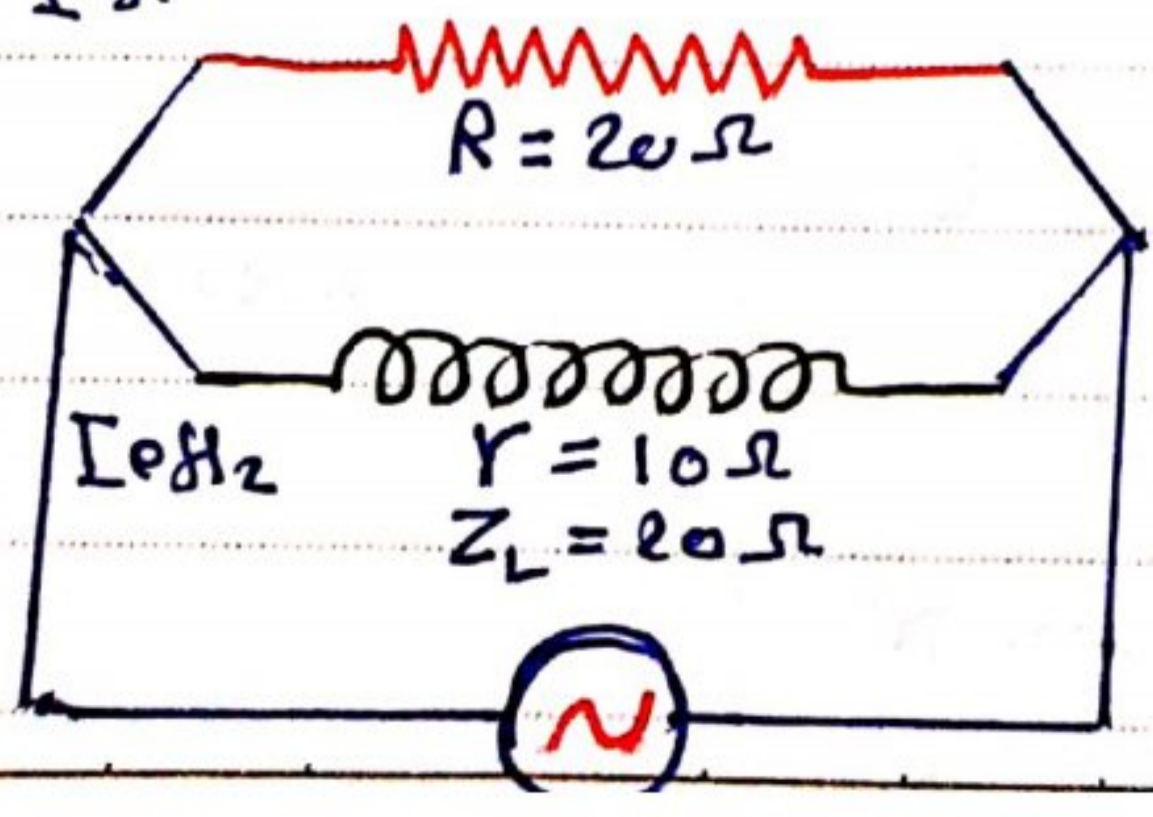 R = 20 Ω
Ieff2
r = 10 Ω
Z_L = 20 Ω